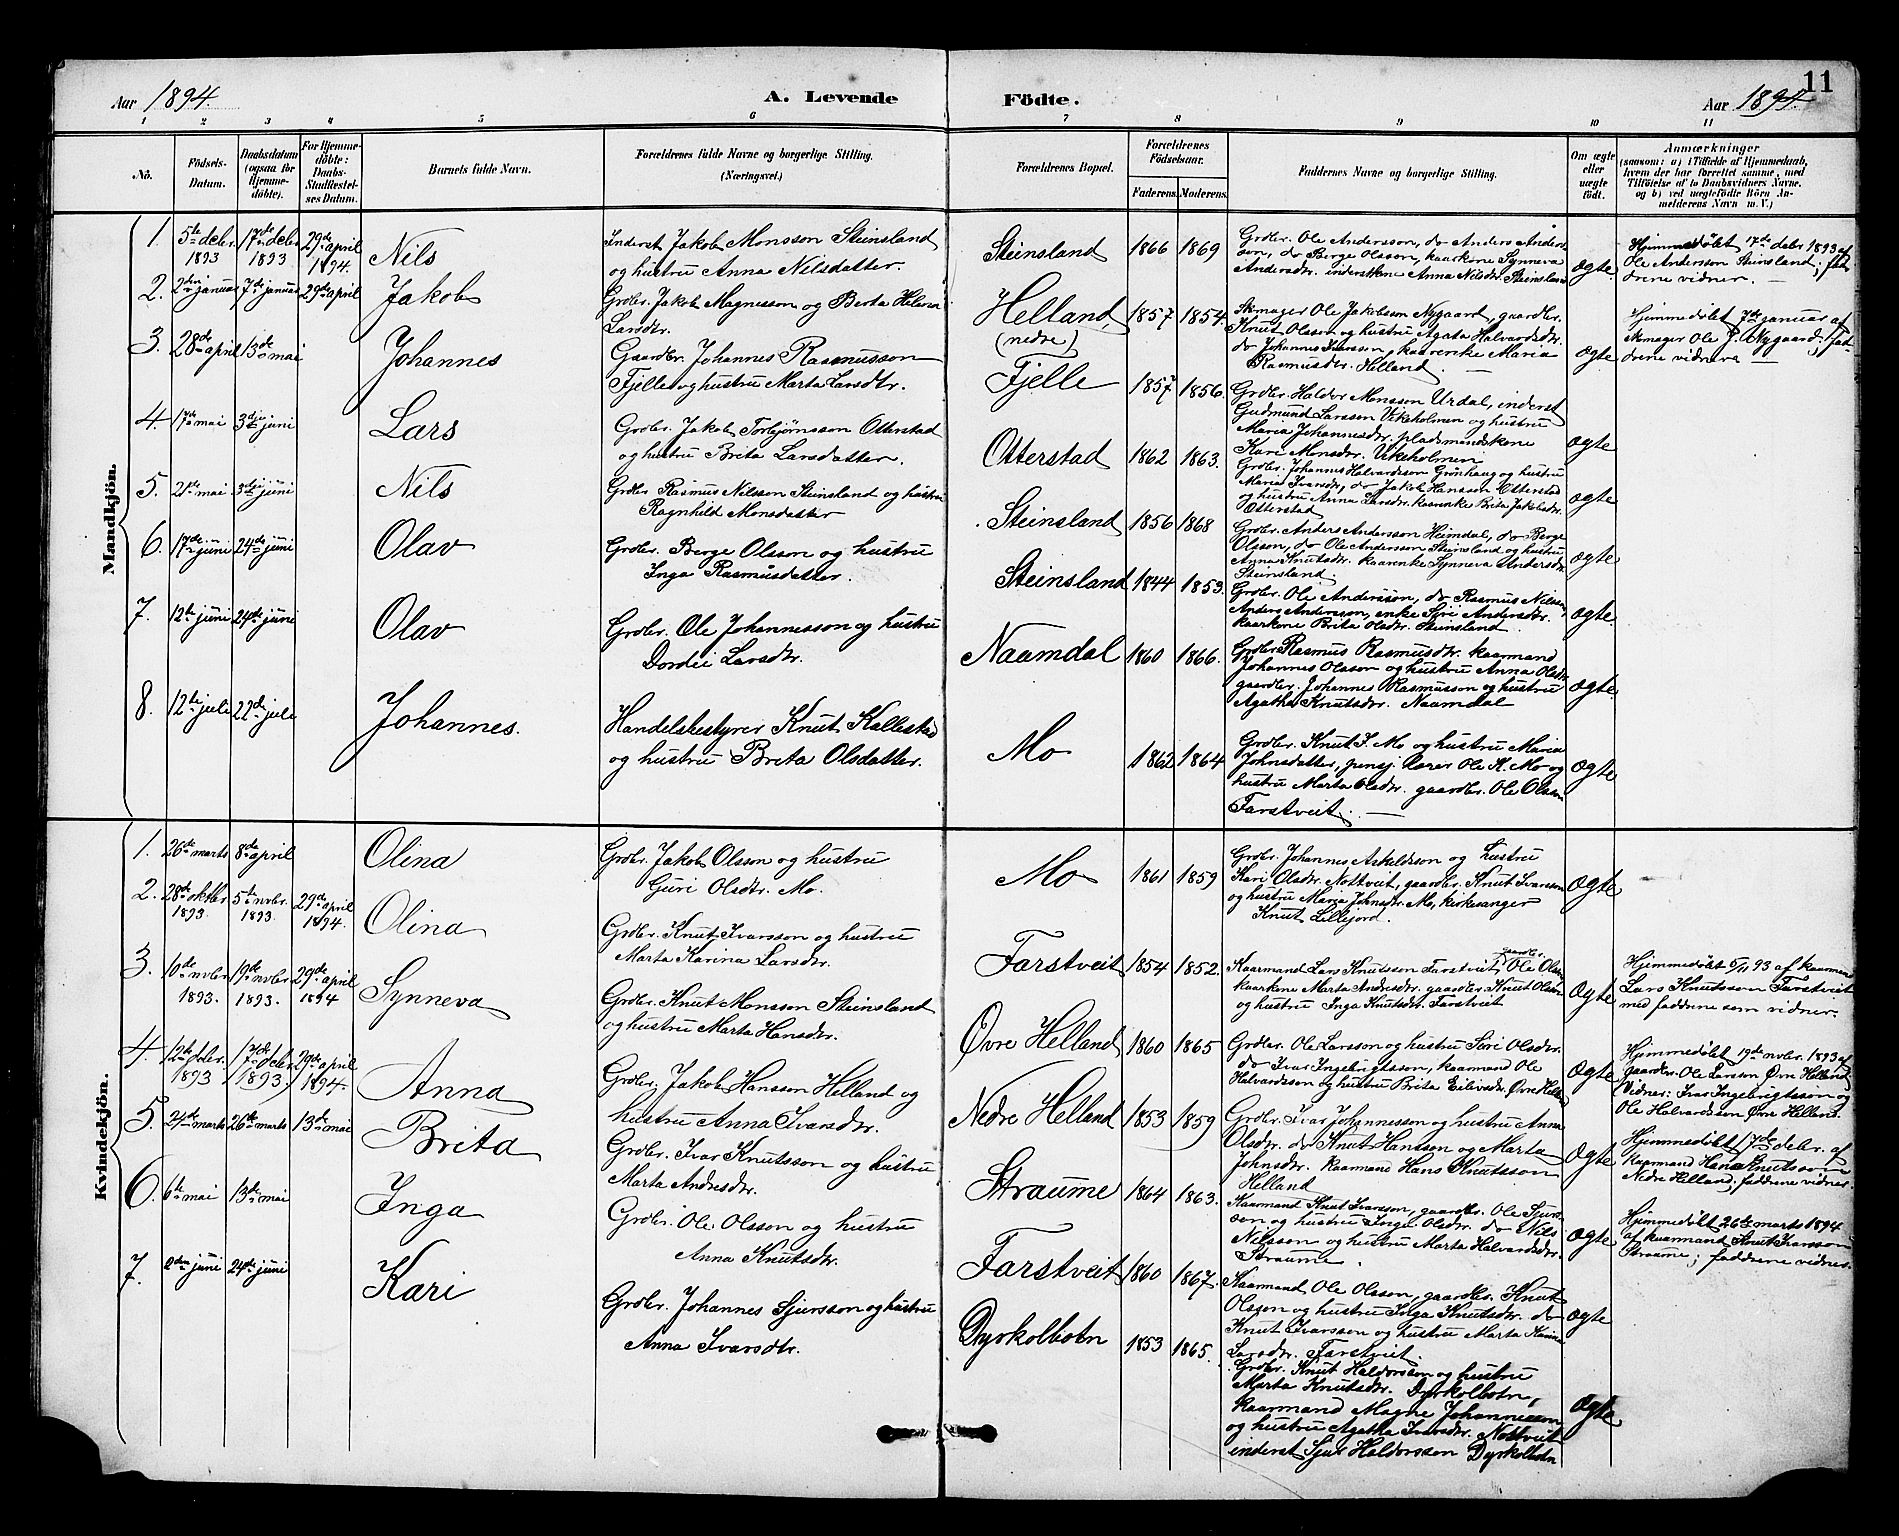 11
Aar 1894.
A. Levende Födte.
Aar 1894.
1 2 3 4 5 6 7 8 9 10 11
No.
Födsels-
Datum.
Daabsdatum
(ogsaa for
Hjemme-
döbte).
For Hjemme-
döbte:
Daabs-
Stadfæstel-
ses Datum.
Barnets fulde Navn.
Forældrenes fulde Navne og borgerlige Stilling.
(Næringsvei.)
Forældrenes Bopæl.
Forældrenes
Födselsaar.
Faderens. Moderens.
Faddernes Navne og borgerlige Stilling.
Om ægte
eller
uægte
födt.
Anmærkninger
(saasom: a) i Tilfælde af Hjemmedaab,
hvem der har forrettet samme, med
Tilföielse af to Daabsvidners Navne,
og b) ved uægtefödte Börn An-
melderens Navn m. V.)
Mandkjön.
1. 5te debr. 1893 17de debr. 1893 29de april 1894. Nils
Inderst Jakob Monsson Steinsland
og hustru Anna Nilsdatter.
Steinsland 1866 1869
Grdbr. Ole Andersson, do Anders Anders-
son, do Berge Olsson, kaarkone Synneva
Andersdr. inderstkone Anna Nilsdr. Steinsland
ægte.
Hjemmedøbt 17de debr 1893 af
Ole Andersson Steinsland; fad-
drene vidner. —
2. 2den januar 7de januar 29de april Jakob
Grdbr. Jakob Magnesson og Berta Helena
Larsdtr.
Helland (nedre) 1857 1854.
Skomager Ole Jakobsson Nygaard, gaardbr.
Knut Olsson og hustru Agata Halvardsdr.
do Johannes Ivarsson, kaarenke Maria
Rasmusdr. Helland.
ægte
Hjemmedøbt 7de januar af
skomager Ole J. Nygaard; fad-
drene vidner
3. 28de april 13de mai Johannes
Gaardbr. Johannes Rasmusson
Fjelle og hustru Marta Larsdtr.
Fjelle 1857 1856.
Grdbr. Haldor Monsson Urdal, inderst
Gudmund Larsson Vikeholmen og hustru
Maria Johannesdr. pladsmandskone
Kari Monsdr. Vikeholmen
ægte
4. 17de mai 3die juni Lars
Grdbr. Jakob Torbjørnsson Otterstad
og hustru Brita Larsdatter.
Otterstad 1862 1863.
Grdbr. Johannes Halvardsson Grønhaug og hustru
Maria Ivarsdr, do Jakob Hansson Otterstad
og hustru Anna Larsdr. kaarenke Brita Jakobsdr.
Otterstad
ægte
5. 21de mai 3die juni Nils
Grdbr Rasmus Nilssen Steinsland og hustru
Ragnhild Monsdatter
Steinsland 1856 1868
Grdbr. Anders Andersson Heimdal, do Berge
Olsson, do Ole Andersson Steinsland og hustru
Anna Knutsdr. kaarenke Synneva Andersdr
Steinsland.
ægte
6. 17de juni 24de juni Olav
Grdbr. Berge Olsson og hustru
Inga Rasmusdatter.
Steinsland 1844 1853.
Grdbr. Ole Andersson, do Rasmus Nilssen,
Anders Andersson, enke Siri Andersdr.
kaarkone Brita Olsdr. Steinsland
ægte.
7. 12te juni 24de juni Olav
Grdbr. Ole Johannesson og hustru
Dordei Larsdtr.
Naamdal 1860 1866.
Grdbr. Rasmus Rasmusdtr. kaarmand
Johannes Olsson og hustru Anna Olsdr
gaardbr. Johannes Rasmusson og hustru
Agatha Knutsdr. Naamdal
ægte
8. 12te juli 22de juli Johannes.
Handelsbestyrer Knut Kallestad
og hustru Brita Olsdatter.
Mo 1862 1864
Grdbr. Knut J. Mo og hustru Maria
Johnsdatter, pensj. lærer Ole K. Mo og
hustru Marta Olsdr. gaardbr. Ole Olsson
Farstveit. —
ægte
Kvindekjön.
1. 26de marts 8de april Olina
Grdbr. Jakob Olsson og hustru
Guri Olsdtr. Mo.
Mo 1861 1859
Grdbr. Johannes Askeldsson og hustru
Kari Olsdr. Nottveit, gaardbr. Knut Ivarsson
og hustru Maria Johnsdtr Mo, kirkesanger
Knut Lillejord.
ægte
2. 28de oktbr 1893. 5te nvbr. 1893. 29de april 1894. Olina
Grdbr. Knut Ivarsson og hustru
Marta Karina Larsdr.
Farstveit 1854 1852.
Kaarmand Lars Knutsson Farstveit, gaardbr. Ole Olsson
kaarkone Marta Andresdr. gaardbr. Knut Olsson
og hustru Inga Knutsdr. Farstveit
ægte
Hjemmedøbt 5/11 93 af kaarmand
Lars Knutsson Farstveit
med faddrene som vidner.
3. 10de nvbr. 1893. 19de nvbr. 1893. 29de april 1894 Synneva
Grdbr. Knut Monsson Steinsland
og hustru Marta Hansdr.
Øvre Helland 1860 1865
Grdbr. Ole Larsson og hustru Siri Olsdr.
do Ivar Ingebrigtsson, kaarmand Ole
Halvardsson og hustru Brita Eilivsdr. Øvre Helland
ægte
Hjemmedøbt 19de nvbr. 1893 af
gaardbr. Ole Larsson Øvre Helland
(Vidner: Ivar Ingebrigtsson og
Ole Halvardsson Øvre Helland.
4. 12te debr. 1893 17de debr 1893) 29de april 1894. Anna
Grdbr. Jakob Hansson Helland og
hustru Anna Ivarsdr.
Nedre Helland 1853 1859
Grdbr. Ivar Johannesson og hustru Anna
Olsdr. do Knut Hansson og Marta
Johnsdr. kaarmand Hans Knutsson
Helland
ægte
Hjemmedøbt 17de debr. af
kaarmand Hans Knutsson
Nedre Helland; faddrene vidner.
5. 24de marts 26te marts 13de mai Brita
Grdbr. Ivar Knutsson og hustru
Marta Andresdr.
Straume 1864 1863.
Kaarmand Knut Ivarsson, gaardbr. Ole Sjurs-
sen og hustru Inga Olsdr. do Nils
Nilsson og hustru Marta Halvardsdr.
Straume.
ægte
Hjemmedøbt 26te marts 1894
af kaarmand Knut Ivarsson
Straume; faddrene vidner.
6. 6te mai 13de mai Inga
Grdbr. Ole Olsson og hustru
Anna Knutsdr.
Farstveit 1860 1867.
Kaarmand Ole Olsson, gaardbr. Knut
Olsson og hustru Inga Knutsdr. do
Knut Ivarsson og hustru Marta Karina
Larsdr. Farstveit.
ægte
7. 2den juni 24de juni Kari
Grdbr. Johannes Sjursson og hustru
Anna Ivarsdtr.
Dyrkolbotn 1853 1865.
Grdbr. Knut Haldorsson og hustru
Marta Knutsdr. Dyrkolbotn,
kaarmand Magne Johannesson
og hustru Agatha Ivarsdr. Nottveit
inderst Sjur Haldorsson Dyrkolbotn
ægte